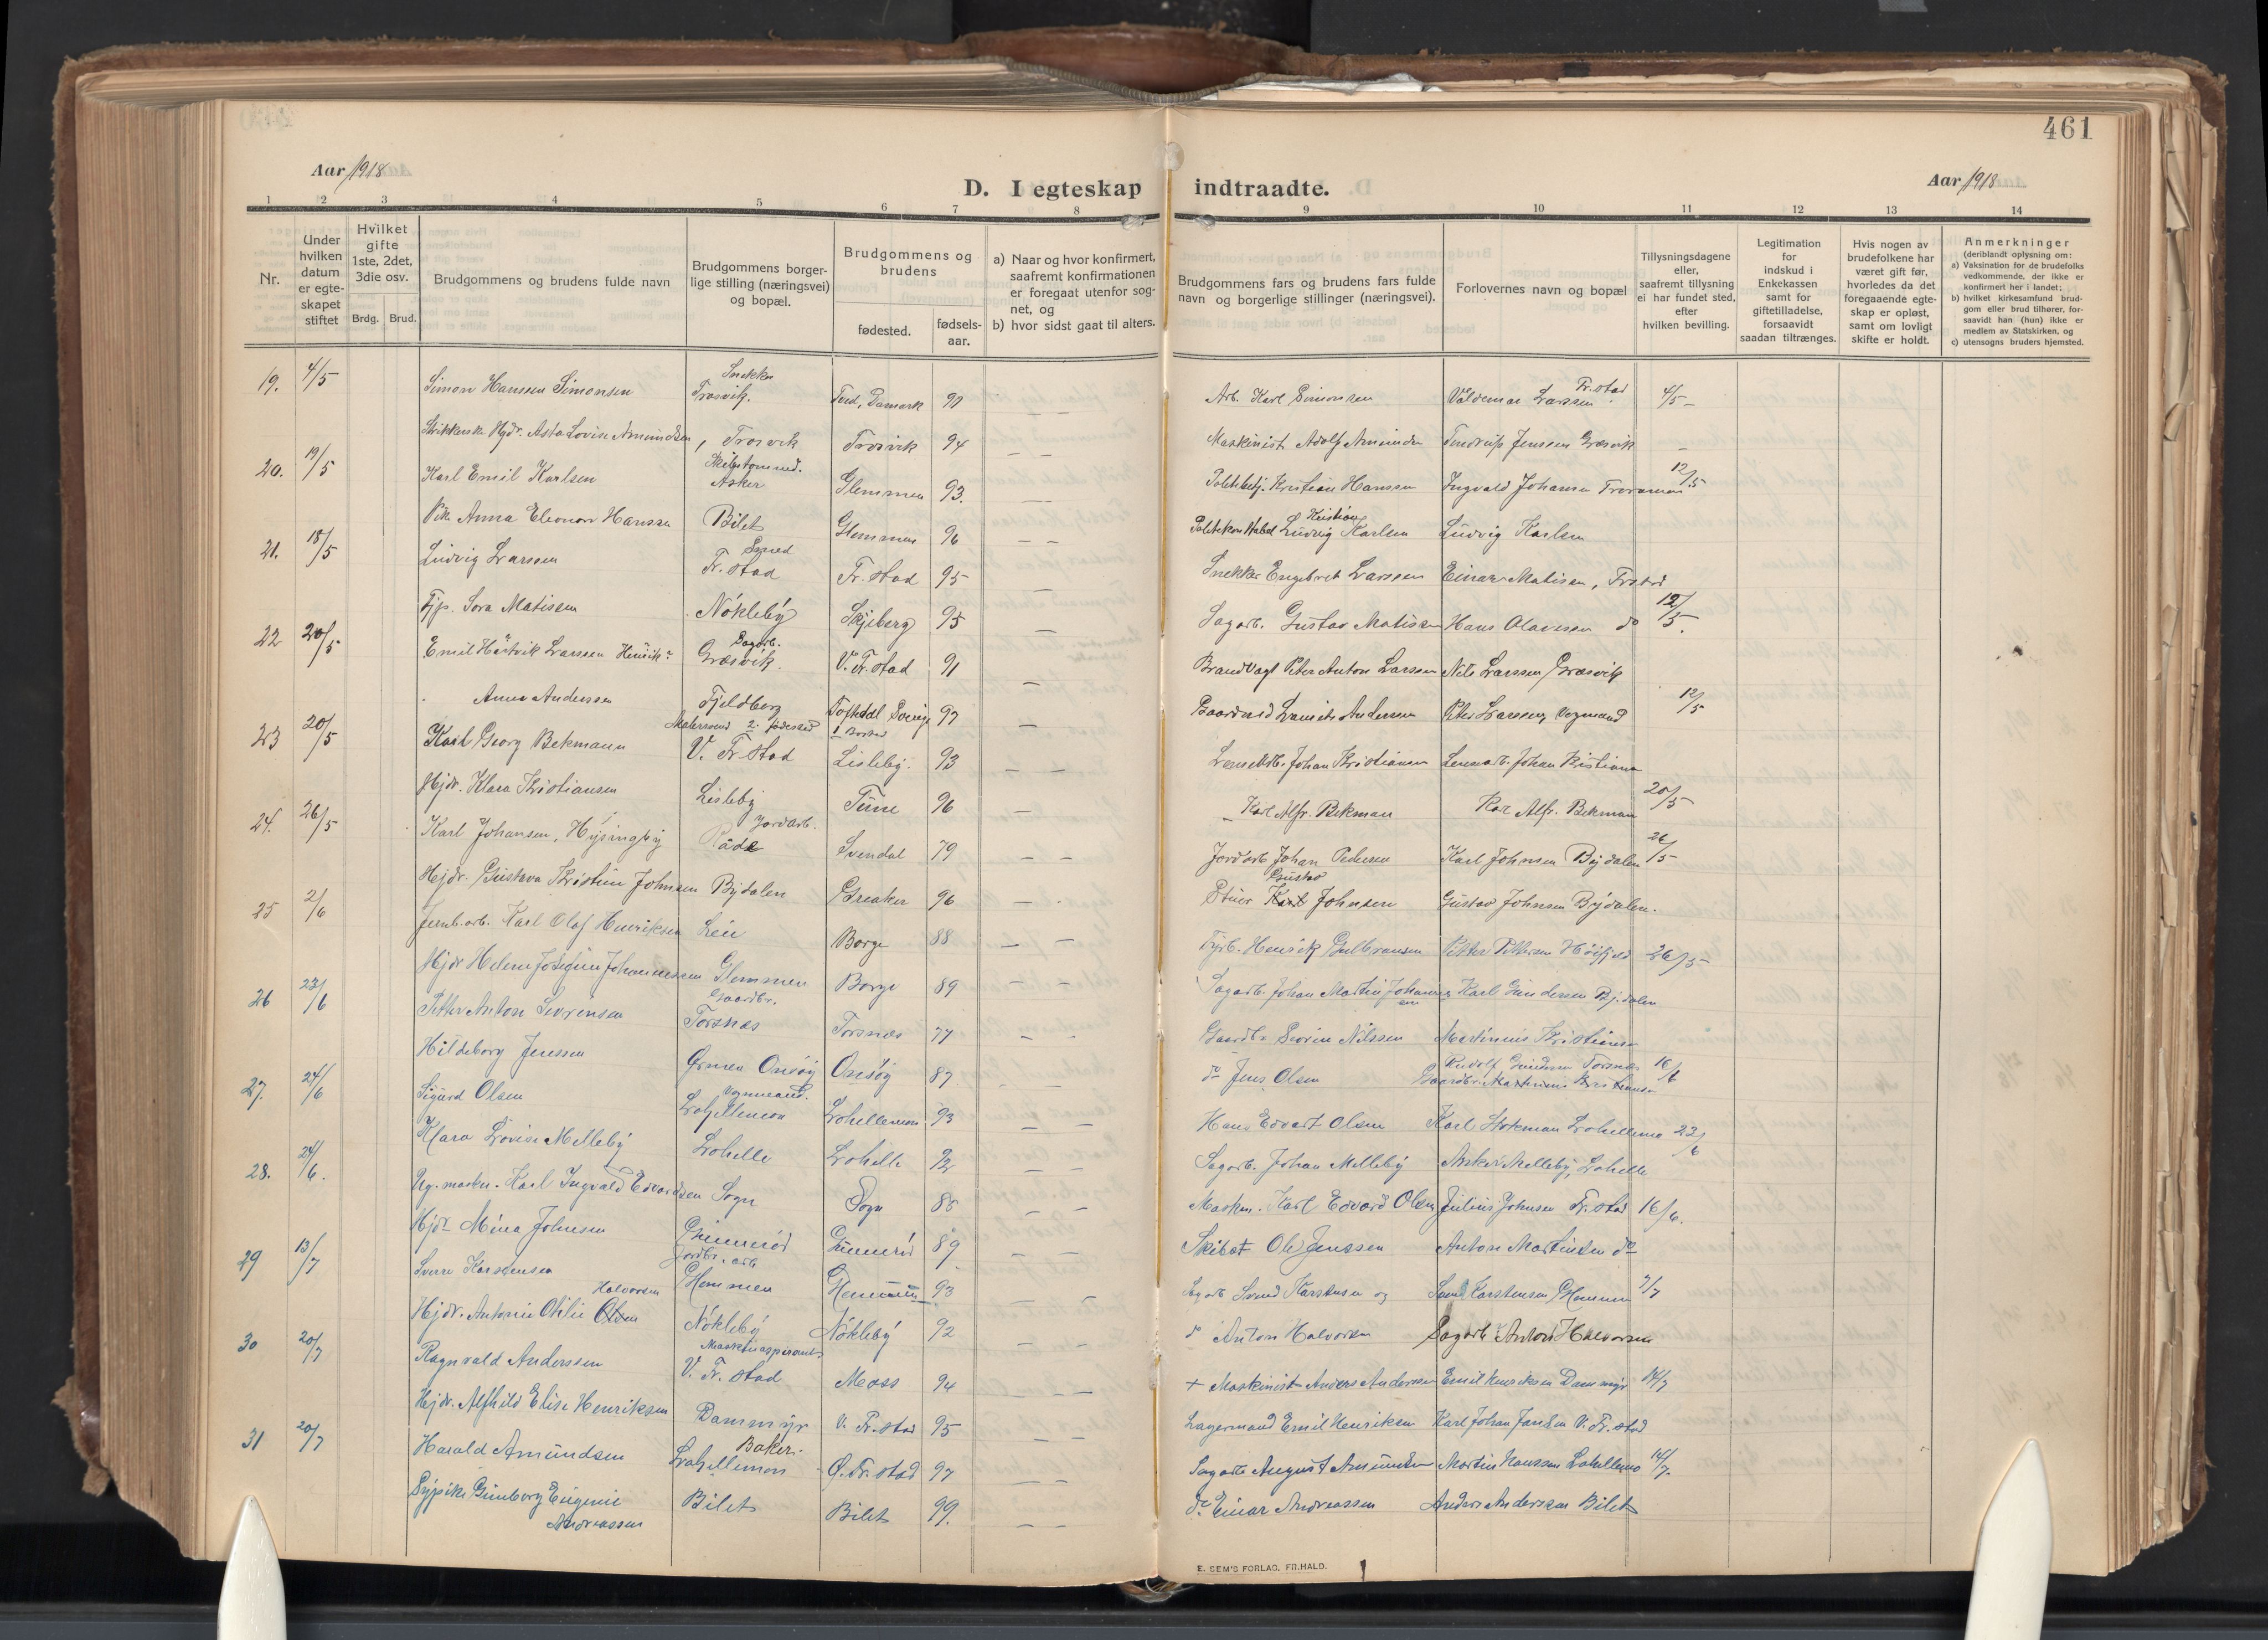 461
Aar 1918
D. I egteskap indtraadte.
Aar 1918
1 2 3 4 5 6 7 8 9 10 11 12 13 14
Nr.
Under hvilken datum er egteskapet stiftet
Hvilket gifte 1ste, 2det, 3die osv.
Brdg. Brud.
Brudgommens og brudens fulde navn
Brudgommens borgerlige stilling (næringsvei) og bopæl.
Brudgommens og brudens
fødested. fødselsaar.
a) Naar og hvor konfirmert, saafremt konfirmationen er foregaat utenfor sognet, og
b) hvor sidst gaat til alters.
Brudgommens fars og brudens fars fulde navn og borgerlige stillinger (næringsvei).
Forlovernes navn og bopæl
Tillysningsdagene eller, saafremt tillysning ei har fundet sted, efter hvilken bevilling.
Legitimation for indskud i Enkekassen samt for giftetilladelse, forsaavidt saadan tiltrænges.
Hvis nogen av brudefolkene har været gift før, hvorledes da det foregaaende egteskap er opløst, samt om lovligt skifte er holdt.
Anmerkninger (deriblandt oplysning om:
a) Vaksination for de brudefolks vedkommende, der ikke er konfirmert her i landet;
b) hvilket kirkesamfund brudgom eller brud tilhører, forsaavidt han (hun) ikke er medlem av Statskirken, og
c) utensogns bruders hjemsted.
19. 4/5 Simon Hanssen Simonsen Snekker Trosvik. Danmark 90 Arb. Karl Simonsen Valdemar Larssen Fr.stad 4/5
Hjdr. Asta Lovise Amundsen, Trosvik Trosvik 94 Maskinist Adolf Amundsen Jenssen Græsvik
20. 19/5 Karl Emil Karlsen Asker Glemmen 93. Kristian Hanssen Ingvald Johansen 12/5
Pike Anna Eleonora Hanssen Bilet Glemmen 96 Ludvig Kristian Karlsen Ludvig Karlsen
21. 18/5 Ludvig Larssen Smed Fr. stad Fr. stad 95 Snekker Engebret Larssen Einar Matisen, Frstad
Tjp. Sora Matissen Nökleby Skjeberg 95 Sagarb. Gustav Matissen Hans Olavesen do 12/5.
22 20/5 Emil Hartvik Larssen Sagarb. Græsvik. V. Fr. stad 91 Brandvagt Peter Anton Larssen Nils Larssen Græsvik
Anna Anderssen Fjeldberg Sverige 97 Anderssen Peter Larssen, Vognmand 12/5
23 20/5 Karl Georg Bekmann Malersvend V. Fr. stad Lisleby. 93 Johan Kristiansen Johan Kristiansen
Hjdr. Klara Kristiansen Lisleby Tune 96 Karl Alfr. Bekman Karl Alfr. Bekman 20/5
24. 26/5 Karl Johansen, Jordarb. Råde Svendal 79 Jordarb Johan Pedersen Karl Johnsen Bydalen 26/5
Hjdr. Gustava Kristine Johnsen Bydalen Greaker 96 Stuer Gustav Johnsen Gustav Johnsen Bydalen.
25 2/6 Jernb.arb. Karl Olaf Henriksen Lén Borge 88 Fyrb. Henrik Gulbransen Petter Pettersen 26/5
Hjdr Helene Josefine Johannessen Glemmen Borge 89 Sagarb. Johan Martin Johannessen Karl Gundersen Bydalen
26 23/6 Petter Anton Sørensen Gaardbr. Torsnæs Torsnæs 77 Gaardbr Sørin Nilssen Martinius Kristiansen
Hildeborg Jenssen Onsöy Onsöy 87 do Jens Olsen Rudolf Gundersen Torsnæs 16/6
Gaardbr. Martinius Kristiansen
27. 24/6 Sigurd Olsen Vognmand. Lahellemoen Lahellemoen 93 Hans Edvart Olsen Karl Stokman Lahellemo 23/6
Klara Lovise Melleby Lahelle Lahelle 92 Sagarb. Johan Melleby Asker Melleby, Lahelle
28. 24/6. Karl Ingvald Edvardsen Sogn Sogn 85 Maskin. Karl Edvard Olsen Julius Johnsen Fr. stad 16/6.
Hjdr Mina Johnsen Gunnerød Gunnerød 89 Skibst Ole Jenssen Anton Martinsen do
29 13/7 Sverre Karstensen Glemmen Glemmen 93 Sagarb Svend Karstensen og Svend Karstensen Glemmen 7/7
Hjdr. Antonie Otilie Olsen Halvorsen Nökleby Nökleby 92 do Anton Halvorsen Sagarb Anton Halvorsen
30 20/7 Ragnvald Anderssen Maskinaspirant V. Fr. stad Moss 94 + Maskinist Anders Anderssen Emil Henriksen Dammyr 14/7
Hjdr. Alfhild Elise Henriksen Dammyr V. Fr. stad 95 Lagermand Emil Henriksen Karl Johan Jansen V. Fr. stad
31 20/7 Harald Amundsen Baker. Lahellemoen Ö. Fr. stad 97 Sagarb August Amundsen Martin Hanssen Lahellemo 14/7.
Sypike Gunborg Eugenie Andreassen Bilet Bilet 99. do Einar Andreassen Anders Anderssen Bilet
E. SEM'S FORLAG, FR.HALD.